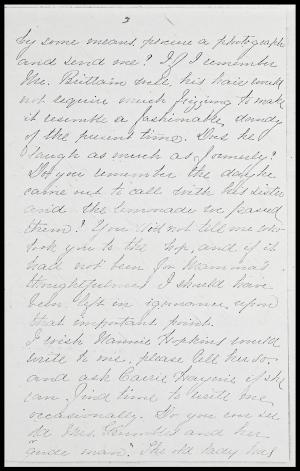 2
by some means, procure a photograph
and send me? If I remember
Mr. Brittain well, his hair would
not require much frizzing to make
it resemble a fashionable dandy
of the present time. Does he
laugh as much as formerly?
Do you remember the day he
came out to call with his sister
and the lemonade we passed
them? You did not tell me who
took you to the hop, and if it
had not been for Mamma's
thoughtfulness I should have
been left in ignorance upon
that important point.
I wish Nannie Hopkins would
write to me, please tell her so
and ask Carrie if she
can find time to write me
occasionally. Do you ever see
old Mrs. and her
gude man? The old lady has